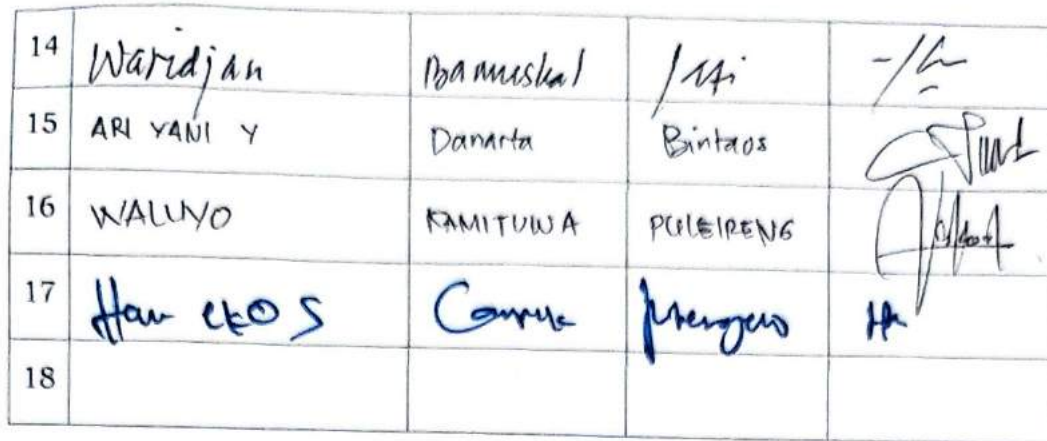 14 Waridjan Bamuskal
15 ARI YANI Y Danarta Bintaos
16 WALUYO KAMITUWA PULEIRENG
17 Hari eko S
18